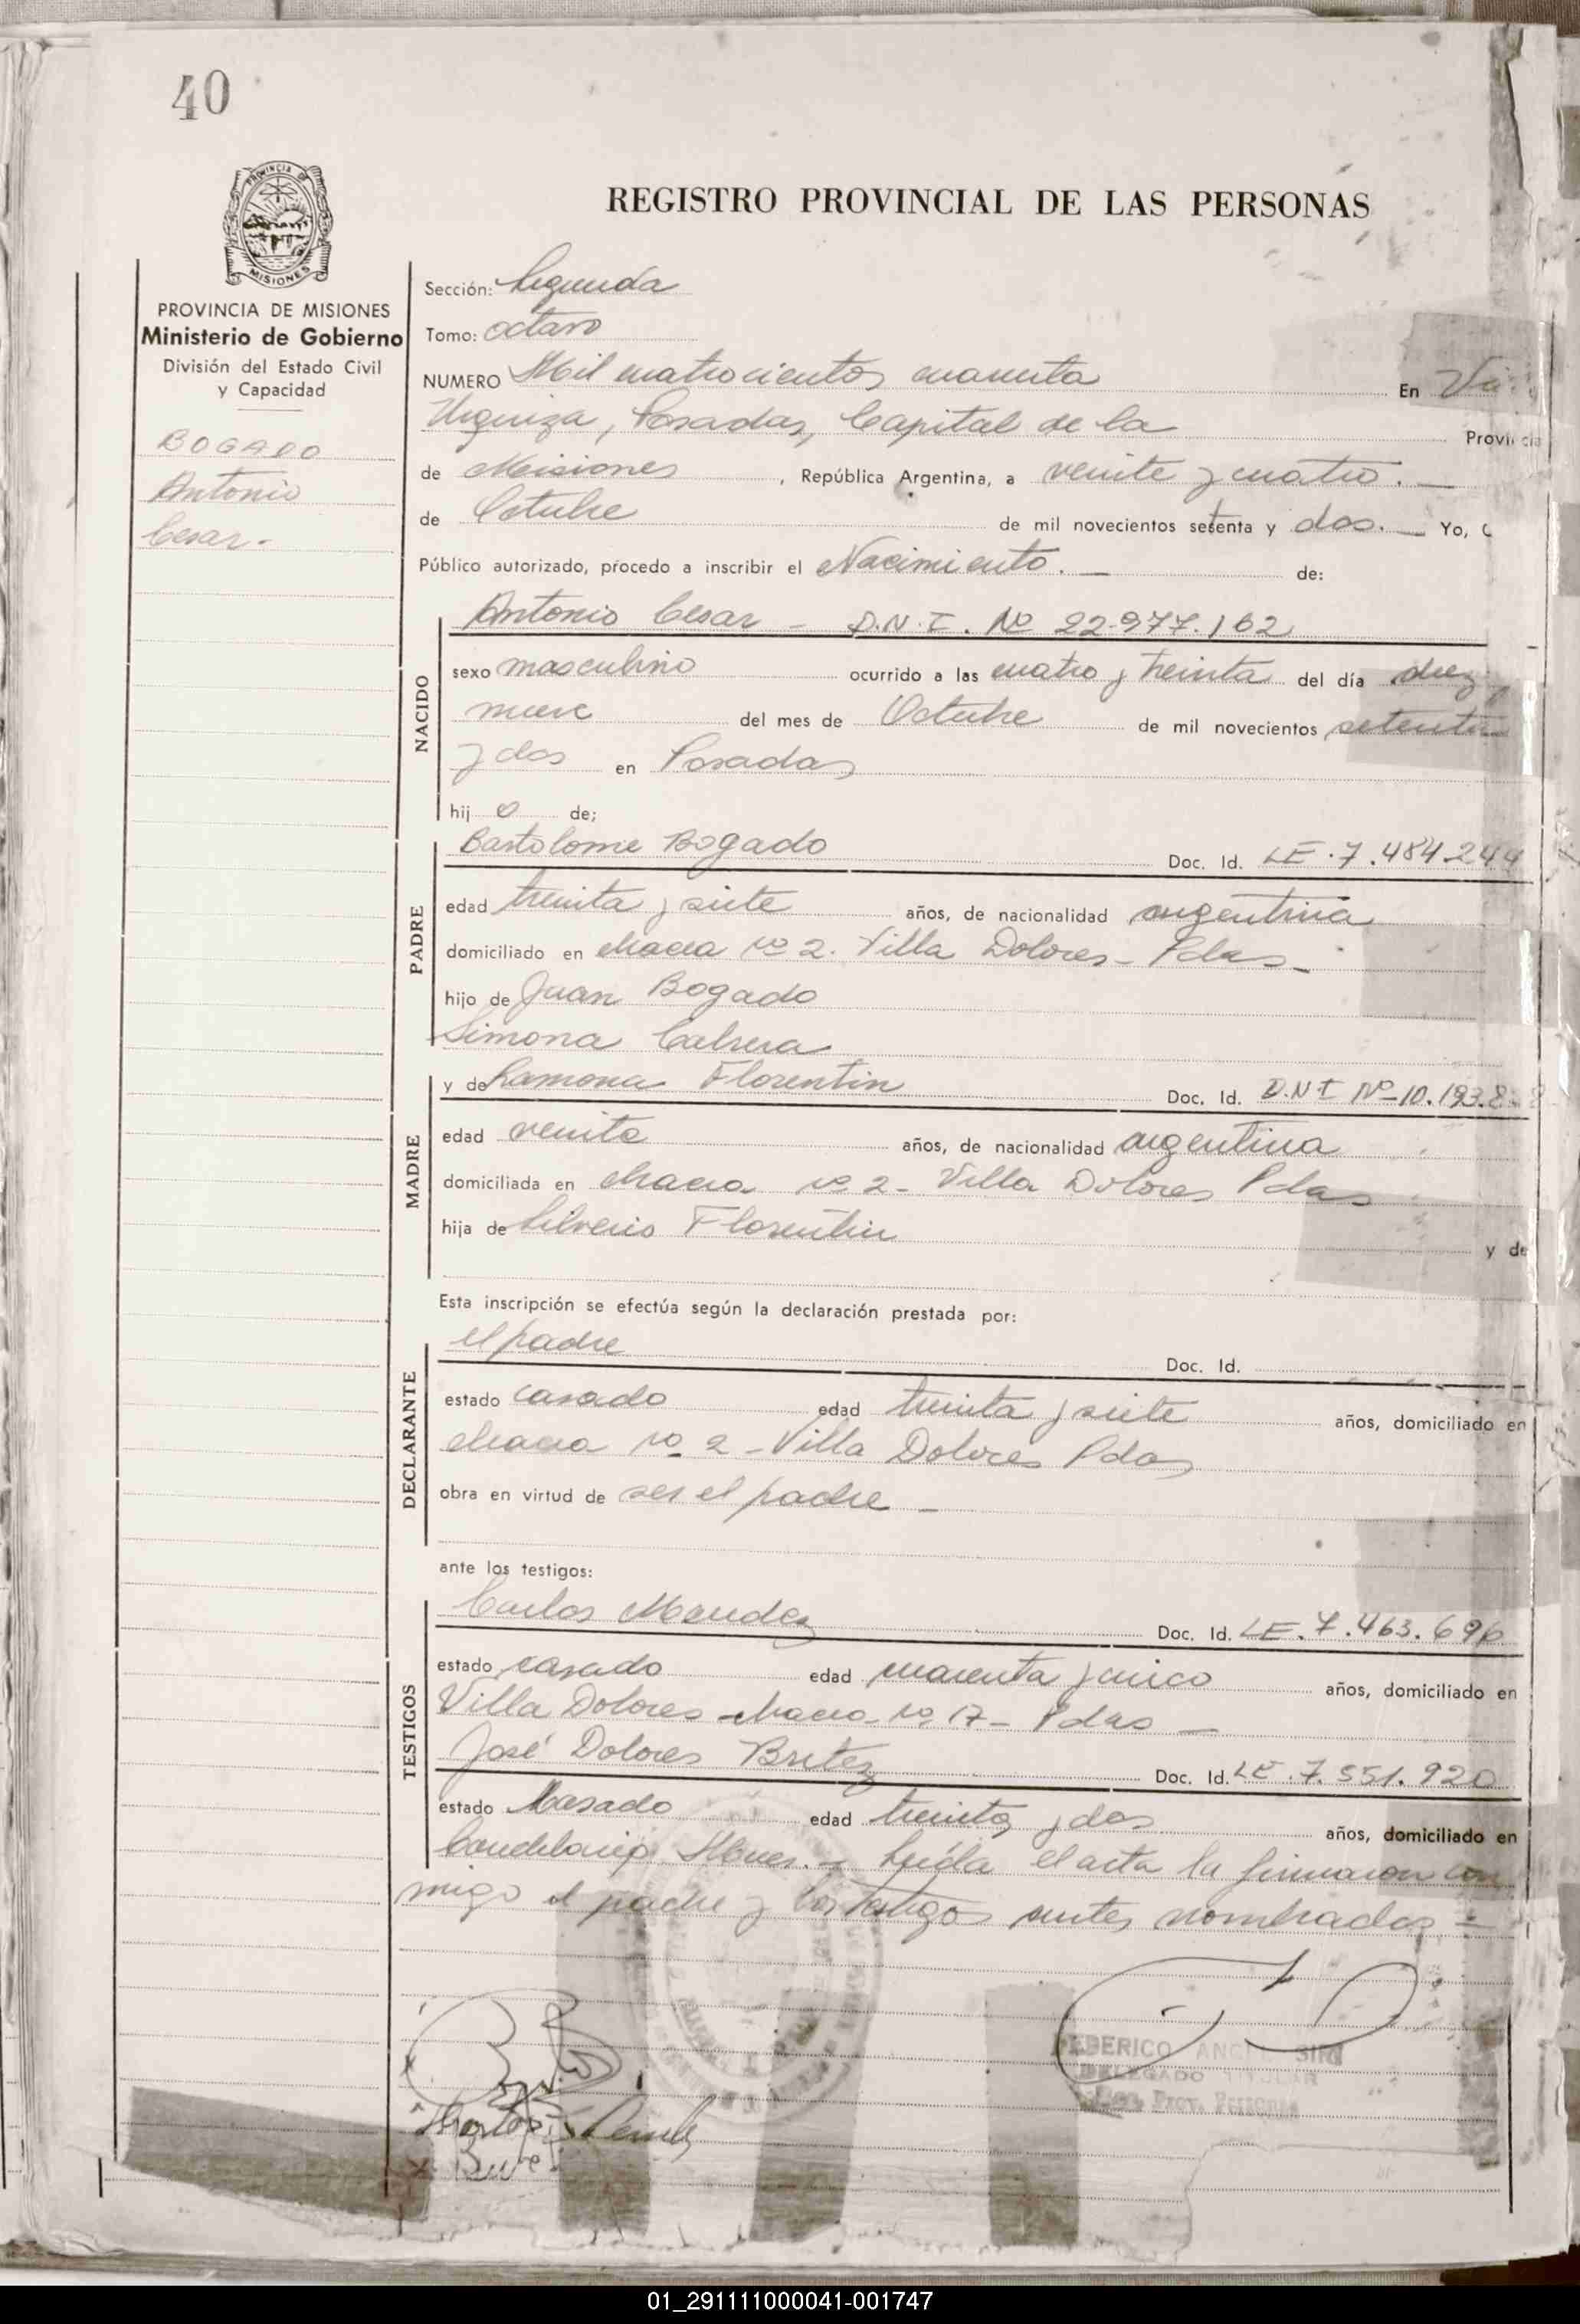 40
PROVINCIA DE
MISIONES
REGISTRO PROVINCIAL DE LAS PERSONAS
PROVINCIA DE MISIONES
Ministerio de Gobierno
División del Estado Civil
y Capacidad
BOGADO
Antonio
Cesar.-
Sección: Segunda
Tomo: octavo
NUMERO Mil cuatrocientos cuarenta En
Urquiza, Posadas, Capital de la Provincia
de Misiones, República Argentina, a veinte y cuatro.—
de Octubre de mil novecientos setenta y dos.— Yo,
Público autorizado, procedo a inscribir el Nacimiento.— de:
NACIDO
Antonio Cesar - D.N.I. Nº 22.977.162
sexo masculino ocurrido a las cuatro y treinta del día diez y
nueve del mes de Octubre de mil novecientos setenta
y dos en Posadas
hij o de;
PADRE
Bartolome Bogado Doc. Id. LE.7.484.244
edad treinta y siete años, de nacionalidad argentina
domiciliado en chacra nº 2. Villa Dolores - Pdas -
hijo de Juan Bogado
Simona Cabrera
MADRE
y de Ramona Florentin Doc. Id. D.N.I Nº 10.193.8
edad veinte años, de nacionalidad argentina
domiciliada en chacra nº 2 - Villa Dolores Pdas
hija de Silverio Florentin y de
Esta inscripción se efectúa según la declaración prestada por:
DECLARANTE
el padre Doc. Id.
estado casado edad treinta y siete años, domiciliado en
chacra nº 2 - Villa Dolores Pdas
obra en virtud de ser el padre -
ante los testigos:
TESTIGOS
Carlos Mendez Doc. Id. LE.7.463.696
estado casado edad cuarenta y cinco años, domiciliado en
Villa Dolores - chacra - nº 17 - Pdas —
José Dolores Britez Doc. Id. LE.7.551.920
estado Casado edad treinta y dos años, domiciliado en
Candelaria Mnes.- Leída el acta la firmaron con
migo el padre y los testigos antes nombrados =
FEDERICO ANGEL
DELEGADO TITULAR
01_291111000041-001747